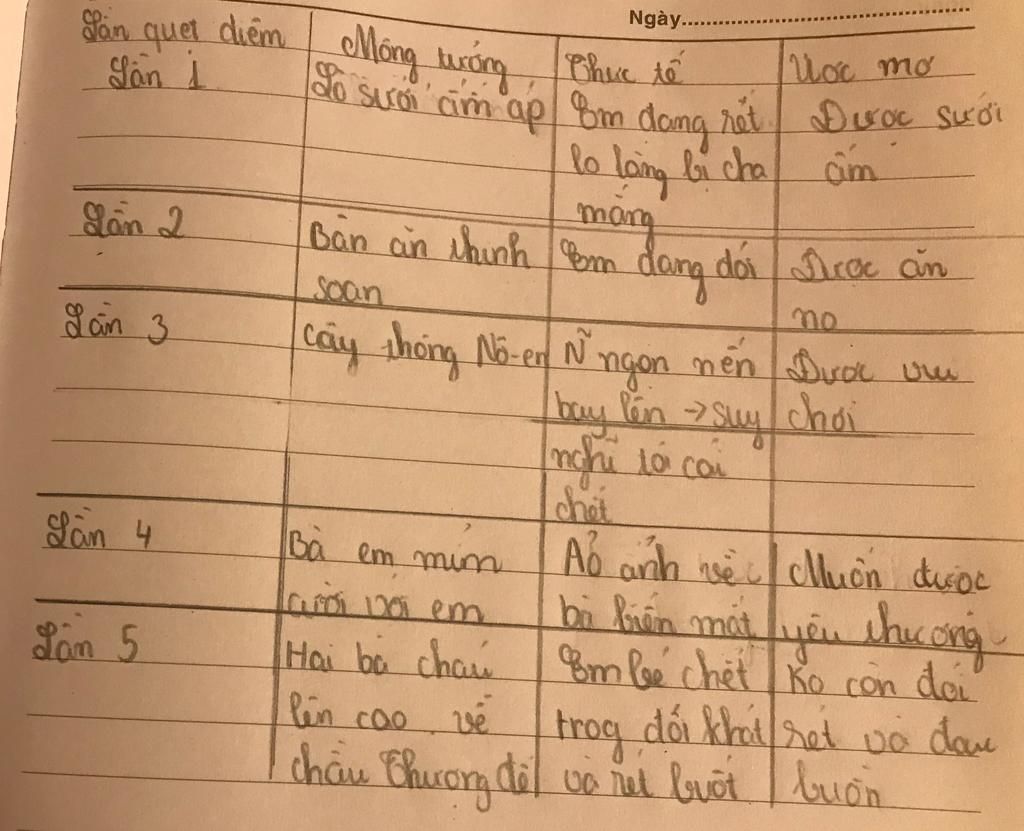 Ngày
Lần quẹt diêm Mộng tưởng Thực tế Ước mơ
Lần 1 Lò sưởi ấm áp Em đang rét Được sưởi
lo lắng bị cha ấm
mắng
Lần 2 Bàn ăn thịnh Em đang đói Được ăn
soạn no
Lần 3 Cây thông Nô-en N~ ngọn nến Được vui
bay lên → suy chơi
nghĩ tới cái
chết
Lần 4 Bà em mỉm Ảo ảnh về Muốn được
cười với em bà biến mất yêu thương
Lần 5 Hai bà cháu Em bé chết Ko còn đói
lên cao về trog đói khát rét và đau
chầu Thượng đế và rét buốt buồn